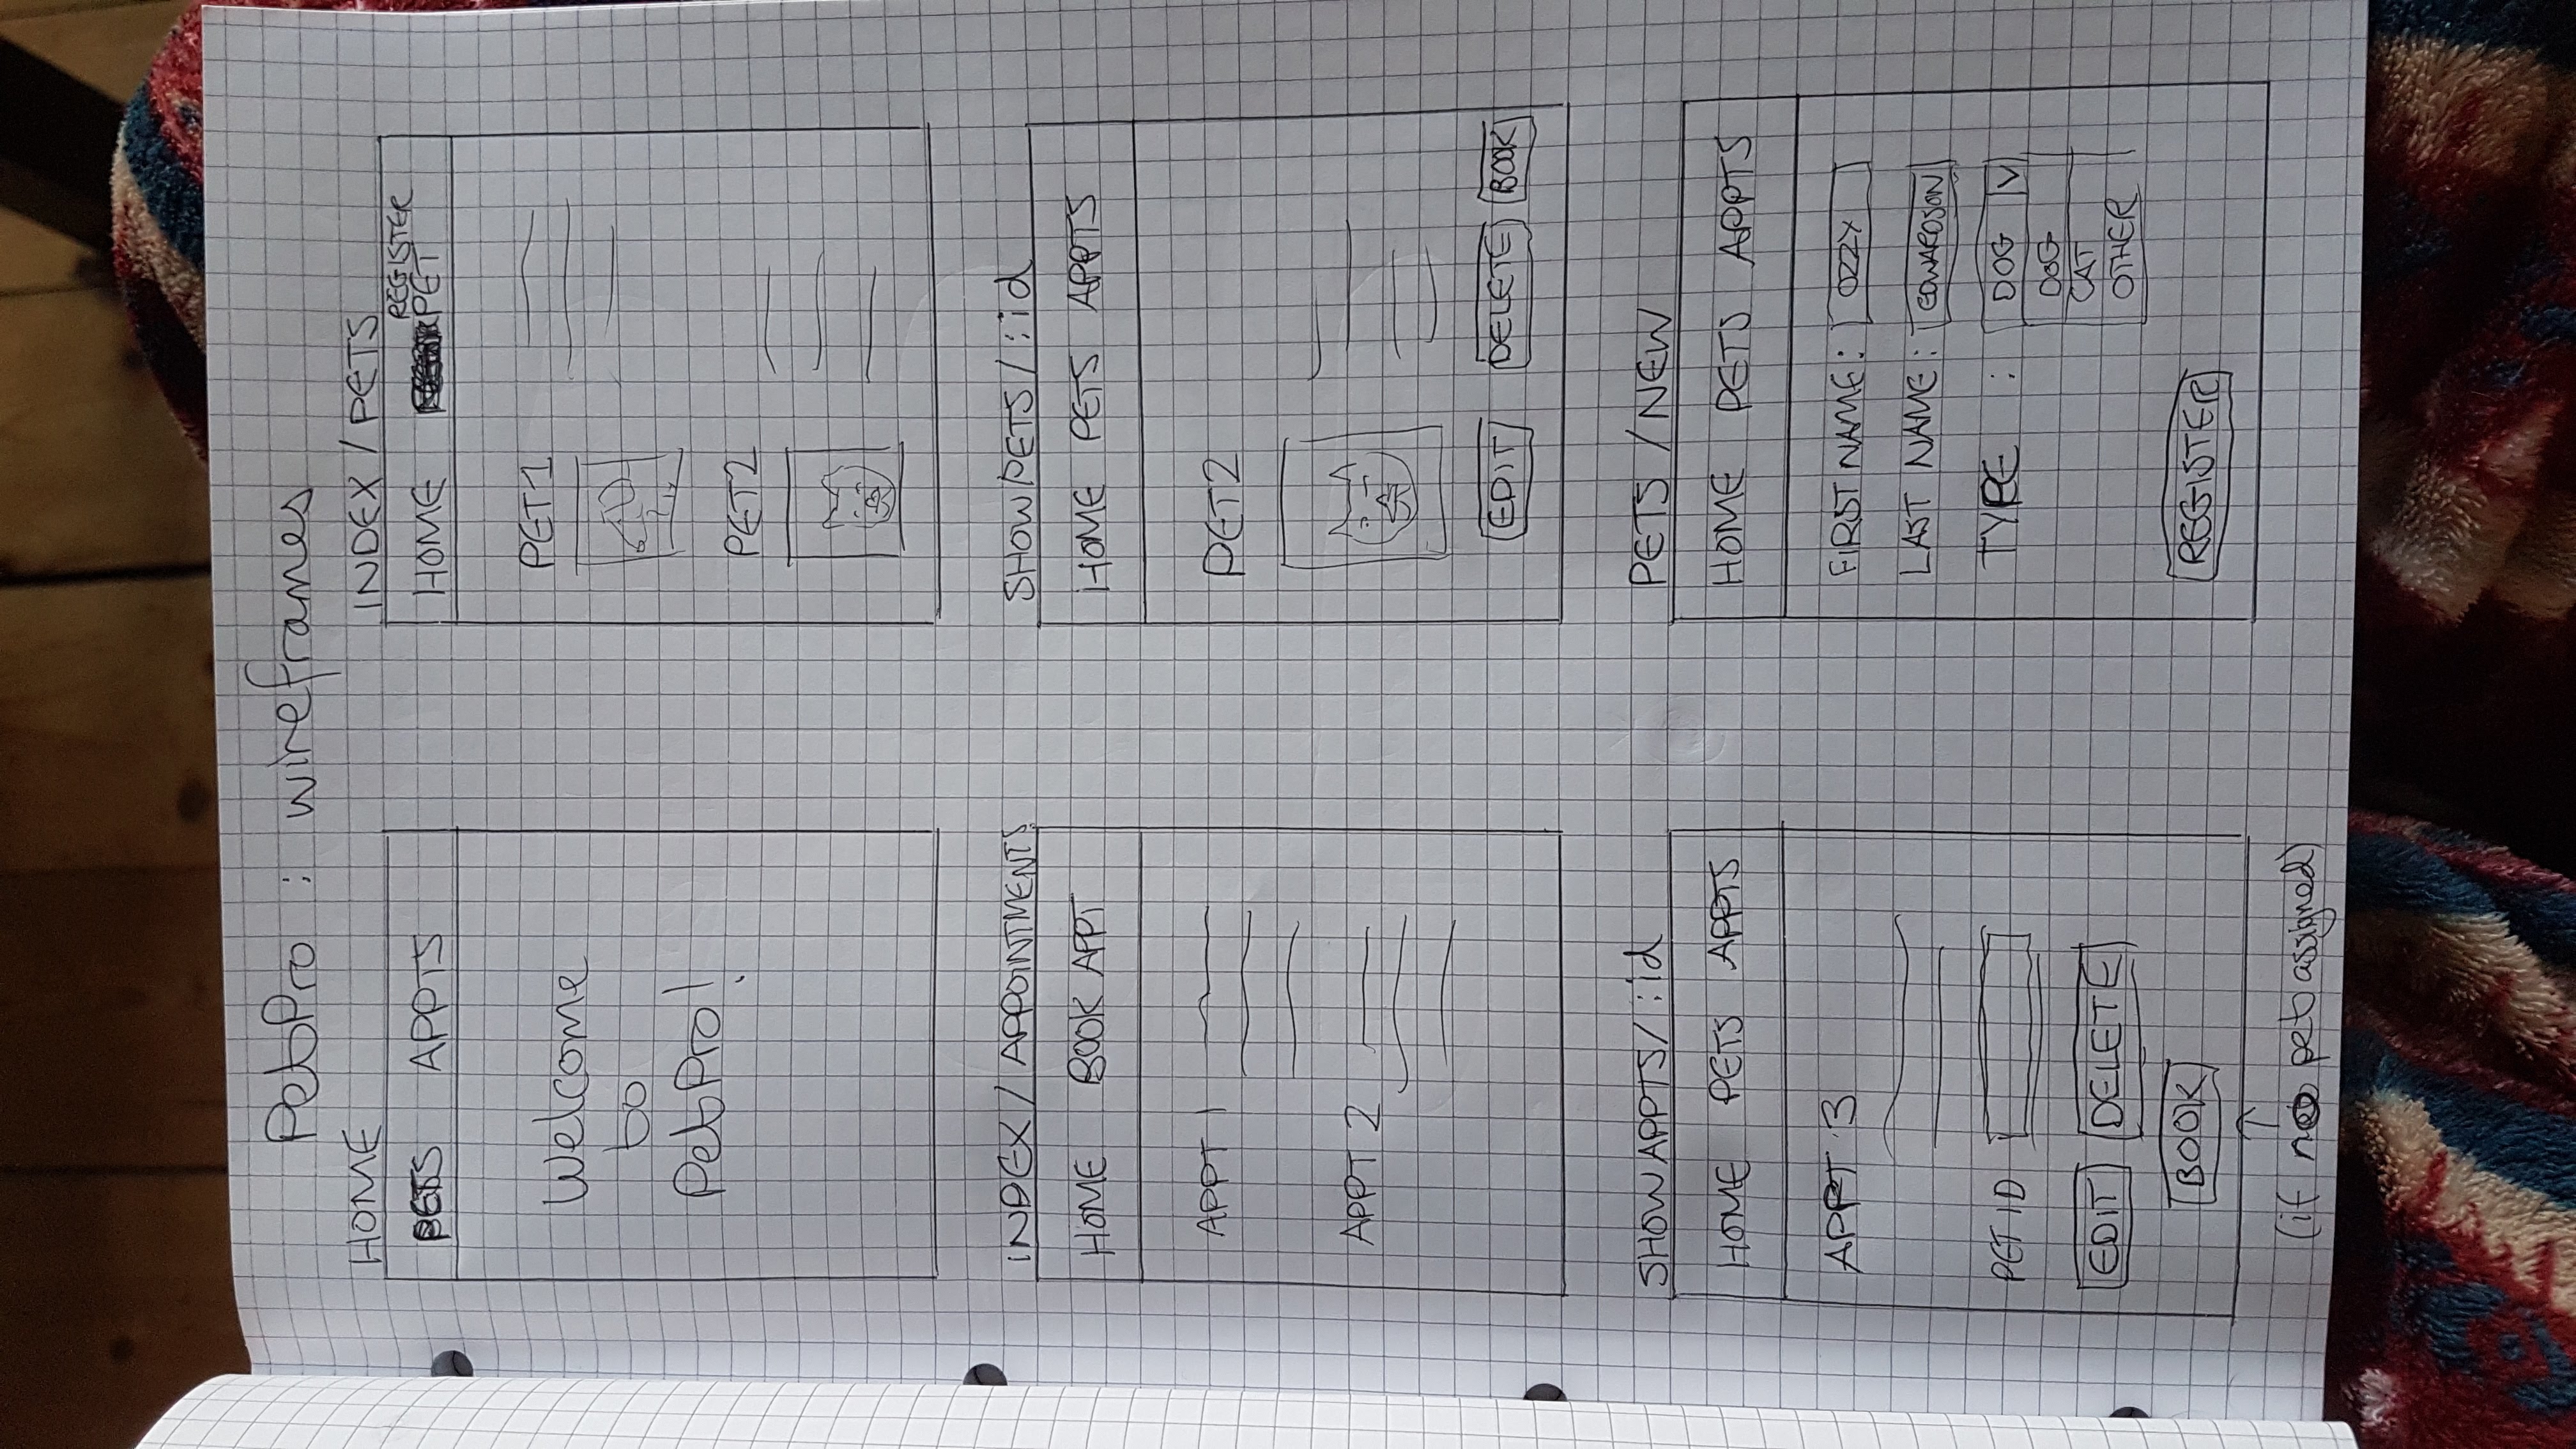 PetPro : wireframes
HOME
PETS APPTS
Welcome
to
PetPro!
INDEX / PETS
REGISTER
HOME PET
PET1
PET2
INDEX / APPOINTMENTS
HOME BOOK APPT
APPT 1
APPT 2
SHOW PETS / :id
HOME PETS APPTS
PET2
EDIT DELETE BOOK
SHOW APPTS / :id
HOME PETS APPTS
APPT 3
PET ID
EDIT DELETE
BOOK
(if no pet assigned)
PETS / NEW
HOME PETS APPTS
FIRST NAME: OZZY
LAST NAME: EDWARDSON
TYPE : DOG V
DOG
CAT
OTHER
REGISTER